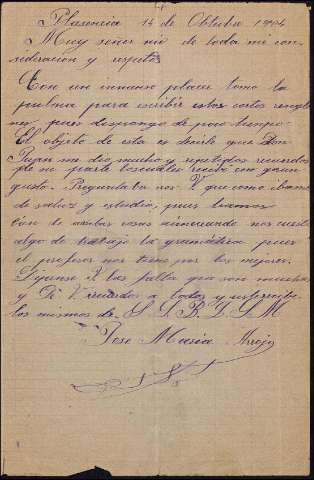 Plasencia 14 de Octubre 1904
Muy señor mio de toda mi con
sideracion y respeto
Con un inmenso placer tomo la
pluma para escribir estos cortos renglo
nes pues dispongo de poco tiempo.
El objeto de esta es decirle que Don
Juan me dio muchos y repetidos recuerdos
de su parte los cuales recibi con gran
gusto. Preguntaba nos V. que como ibamos
de salud y estudio, pues vamos
bien de ambas cosas aunque nos cuesta
algo de trabajo la gramática pues
el profesor nos tiene por los mejores.
V. las faltas que son muchas
y De V. recuerdos a todos y V. recibe
los mismos de S. S. Q. B. S. M.
Jose Maria Arrojo